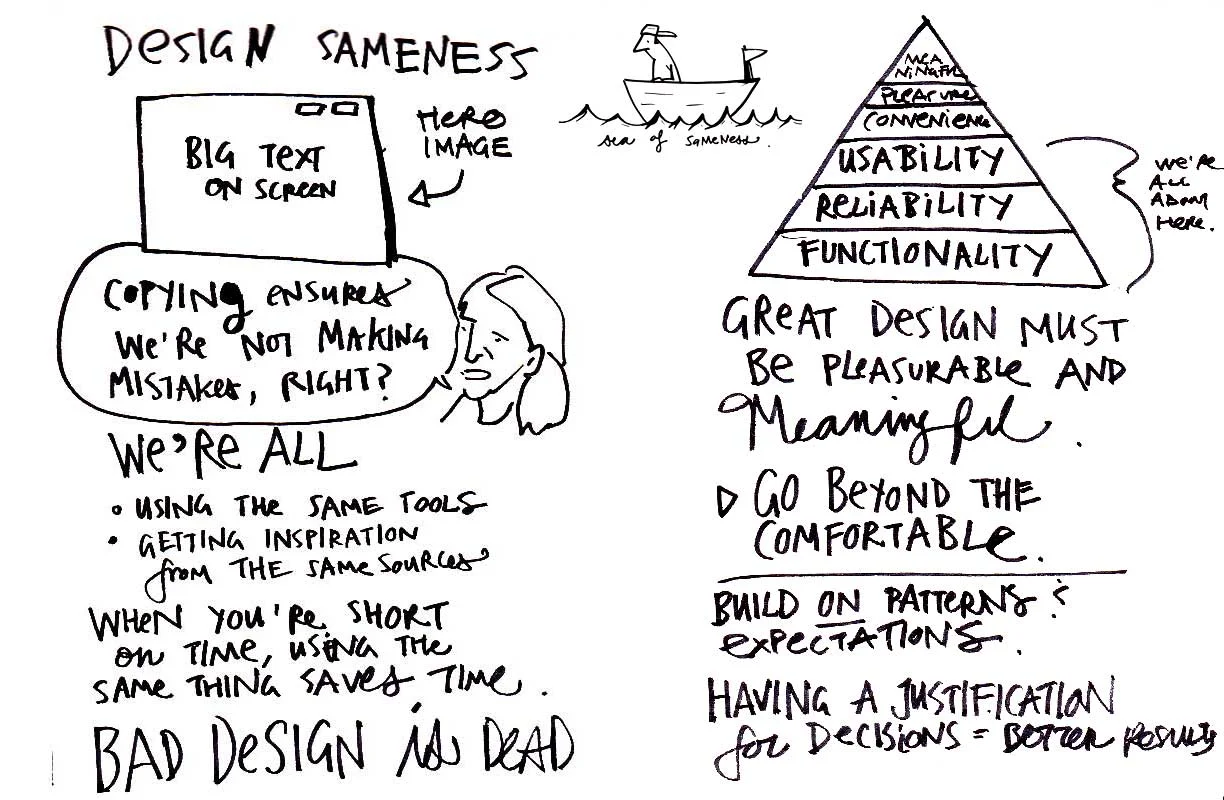 DESIGN SAMENESS
BIG TEXT
ON SCREEN
HERO
IMAGE
COPYING ENSURES
WE'RE NOT MAKING
MISTAKES, RIGHT?
WE'RE ALL
• USING THE SAME TOOLS
• GETTING INSPIRATION
from THE SAME SOURCES
WHEN YOU'RE SHORT
ON TIME, USING THE
SAME THING SAVES TIME.
BAD DESIGN is DEAD
sea of sameness.
MEA
NINGFUL
PLEASURE
CONVENIENCE
USABILITY
RELIABILITY
FUNCTIONALITY
WE'RE
ALL
ABOUT
HERE.
GREAT DESIGN MUST
BE PLEASURABLE AND
Meaningful.
GO BEYOND THE
COMFORTABLE.
BUILD ON PATTERNS &
EXPECTATIONS.
HAVING A JUSTIFICATION
for DECISIONS = BETTER RESULTS